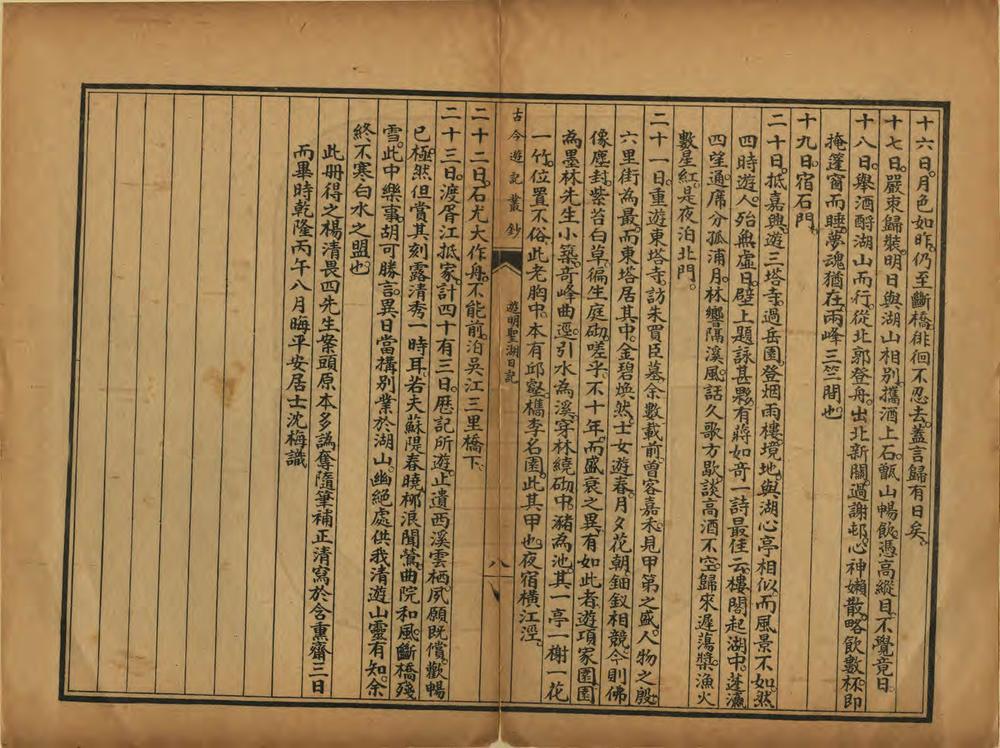 十六日。月色如昨。仍至斷橋。徘徊不忍去。蓋言歸有日矣。
十七日。嚴束歸裝。明日與湖山相別。攜酒上石甑山暢飲。憑高縱目。不覺竟日。
十八日。舉酒酹湖山而行。從北郭登舟。出北新關。過謝邨。心神嬾散。略飲數杯。即
掩篷窗而睡。夢魂猶在兩峰三竺間也。
十九日。宿石門。
二十日。抵嘉興。遊三塔寺。過岳園。登烟雨樓。境地與湖心亭相似。而風景不如。然
四時遊人。殆無虛日。壁上題詠甚夥。有蔣如奇一詩最佳。云。樓閣起湖中。蓬瀛
四望通。席分孤浦月。林響隔溪風。話久歌方歇。談高酒不空。歸來遲蕩槳。漁火
數星紅。是夜泊北門。
二十一日。重遊東塔寺。訪朱買臣墓。余數載前曾客嘉禾。見甲第之盛。人物之殷。
六里街為最。而東塔居其中。金碧煥然。士女遊春。月夕花朝。鈿釵相競。今則佛
像塵封。紫苔白草。徧生庭砌。嗟乎。不十年。而盛衰之異。有如此者。遊項家園。園
為墨林先生小築。奇峰曲逕。引水為溪。穿林繞砌。中豬為池。其一亭一榭一花
一竹。位置不俗。此老胸中。本有邱壑。檇李名園。此其甲也。夜宿橫江涇。
古今遊記叢鈔
遊明聖湖日記
八
二十二日。石尤大作。舟不能前。泊吳江三里橋下。
二十三日。渡胥江抵家。計四十有三日。歷記所遊。止遺西溪雲栖。夙願既償。歡暢
已極。然但賞其刻露清秀一時耳。若夫蘇隄春曉。柳浪聞鶯。曲院和風。斷橋殘
雪。此中樂事。胡可勝言。異日當搆別業於湖山。幽絕處供我清遊。山靈有知。余
終不寒白水之盟也。
此冊得之楊清畏四先生案頭原本多譌奪隨筆補正清寫於含熏齋三日
而畢時乾隆丙午八月晦平安居士沈梅識